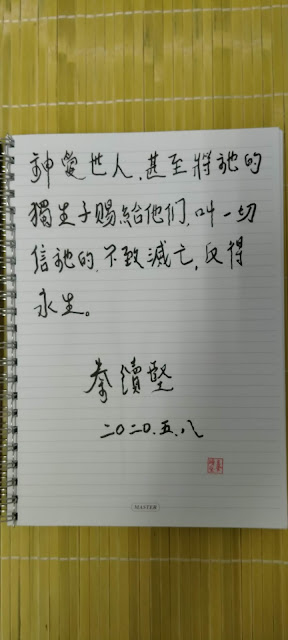 神愛世人,甚至將祂的
獨生子賜給他們,叫一切
信祂的,不致滅亡,反得
永生。
秦續堅
二〇二〇.五.八
MASTER